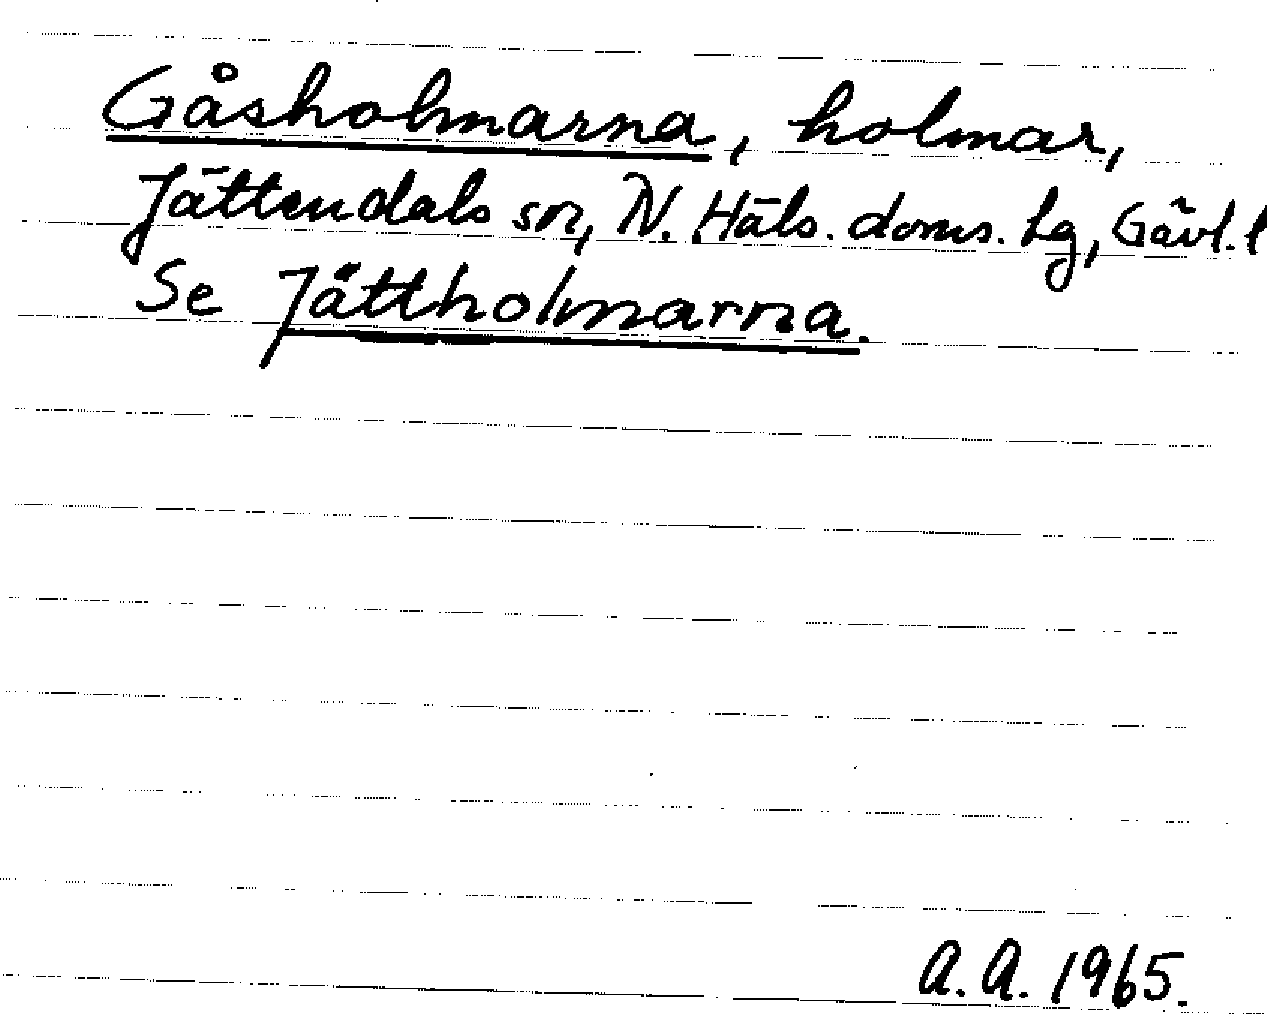 Gåsholmarna, holmar,
Jättendals sn, N. Häls. doms. lg, Gävl. l
Se Jättholmarna.
A.A. 1965.